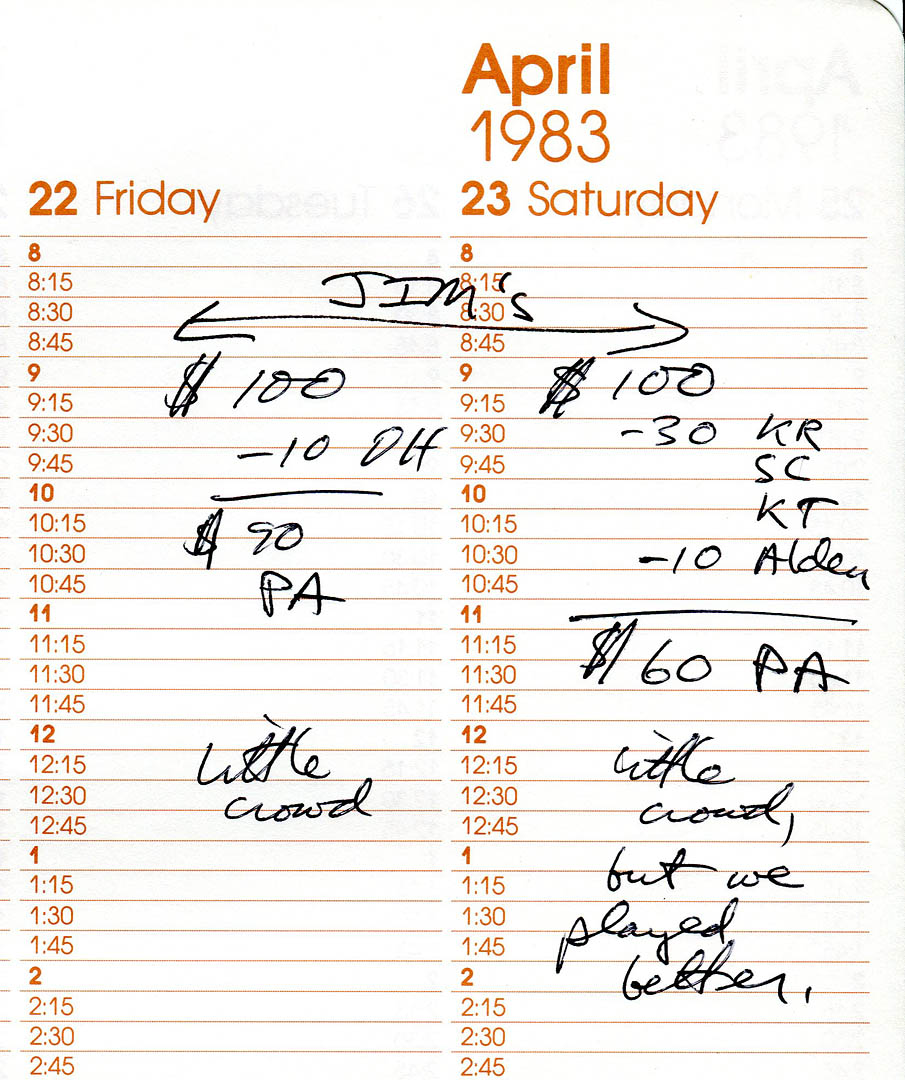 April
1983
22 Friday
23 Saturday
JIM's
8
8:15
8:30
8:45
9
9:15
9:30
9:45
10
10:15
10:30
10:45
11
11:15
11:30
11:45
12
12:15
12:30
12:45
1
1:15
1:30
1:45
2
2:15
2:30
2:45
$ 100
-10 DH
$ 90
PA
little
crowd
8
8:15
8:30
8:45
9
9:15
9:30
9:45
10
10:15
10:30
10:45
11
11:15
11:30
11:45
12
12:15
12:30
12:45
1
1:15
1:30
1:45
2
2:15
2:30
2:45
$ 100
-30 KR
SC
KT
-10 Alden
$ 60 PA
little
crowd,
but we
played
better.